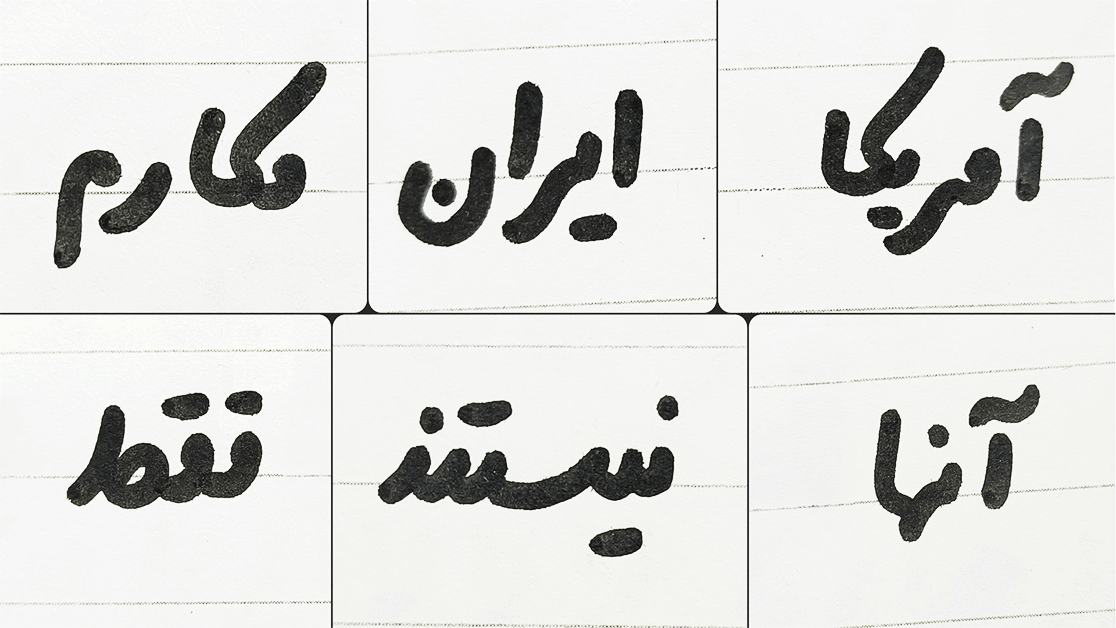 آمریکا ایران مکارم
آنها نیستند تقط